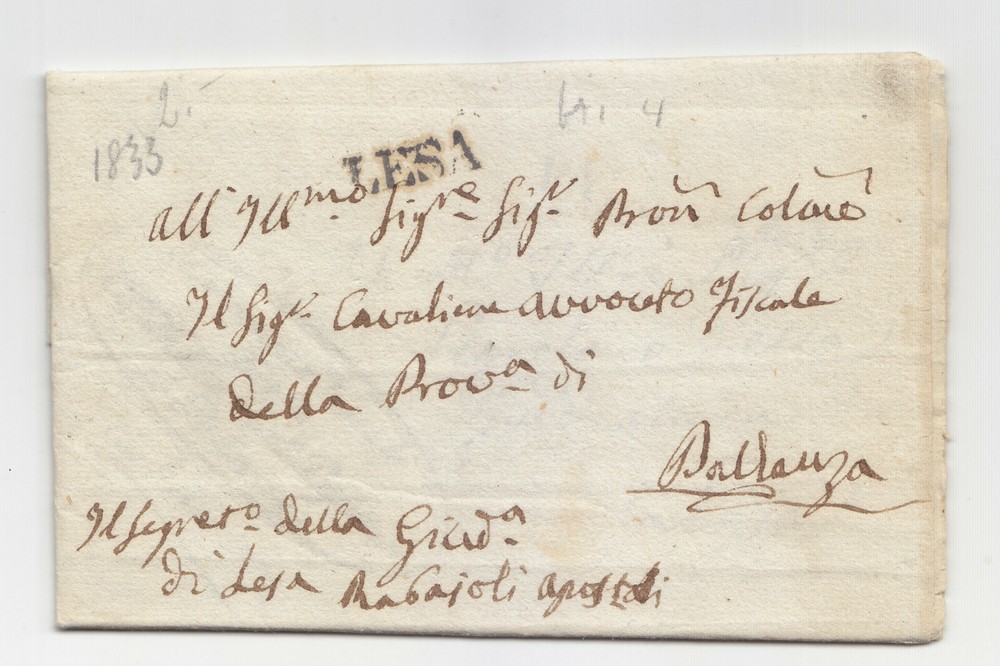 2.-
1833
4
LESA
All' Illmo Sigre Sigr Pron Colmo
Il Sigr Cavaliere avvocato Fiscale
della Prova di
Pallanza
Il Segreto della Giudra
di Lesa Rabajoli